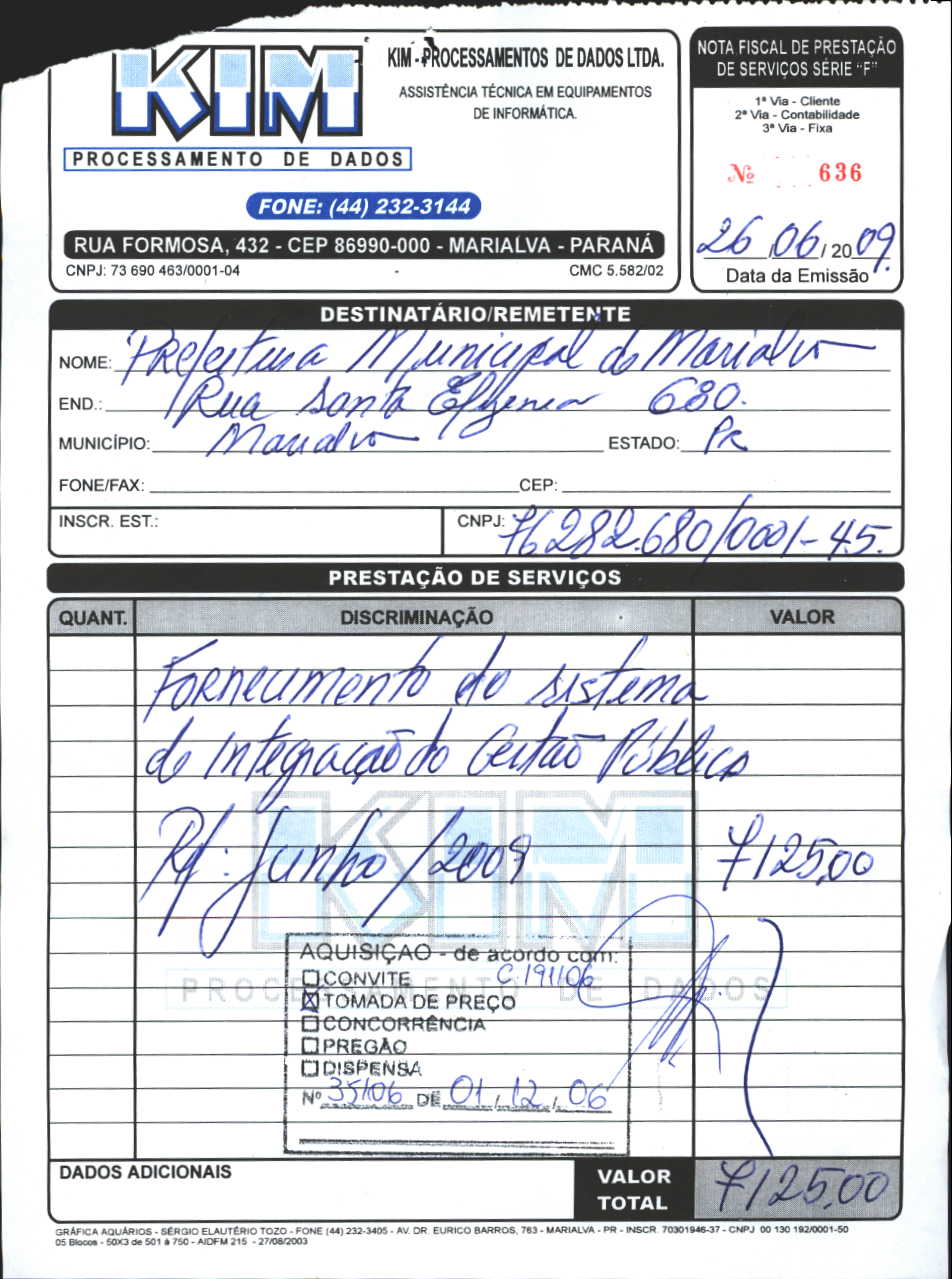 KIM
PROCESSAMENTO DE DADOS
KIM - PROCESSAMENTOS DE DADOS LTDA.
ASSISTÊNCIA TÉCNICA EM EQUIPAMENTOS
DE INFORMÁTICA.
FONE: (44) 232-3144
RUA FORMOSA, 432 - CEP 86990-000 - MARIALVA - PARANÁ
CNPJ: 73 690 463/0001-04 CMC 5.582/02
NOTA FISCAL DE PRESTAÇÃO
DE SERVIÇOS SÉRIE “F”
1ª Via - Cliente
2ª Via - Contabilidade
3ª Via - Fixa
Nº 636
26/06/2009.
Data da Emissão
DESTINATÁRIO/REMETENTE
NOME: Prefeitura Municipal de Marialva
END.: Rua Santa Efigenia 680.
MUNICÍPIO: Marialva ESTADO: Pr
FONE/FAX: CEP:
INSCR. EST.: CNPJ: 76282.680/0001-45.
PRESTAÇÃO DE SERVIÇOS
QUANT. DISCRIMINAÇÃO VALOR
Fornecimento do sistema
de Integração de Gestão Pública
Rf: Junho/2009 7125,00
KIM
PROCESSAMENTO DE DADOS
AQUISIÇAO - de acordo com:
CONVITE C.191106
TOMADA DE PREÇO
CONCORRÊNCIA
PREGÃO
DISPENSA
Nº 35/06 DE 01/12/06
DADOS ADICIONAIS
VALOR TOTAL 7125,00
GRÁFICA AQUÁRIOS - SÉRGIO ELAUTÉRIO TOZO - FONE (44) 232-3405 - AV. DR. EURICO BARROS, 763 - MARIALVA - PR - INSCR. 70301946-37 - CNPJ 00 130 192/0001-50
05 Blocos - 50X3 de 501 à 750 - AIDFM 215 - 27/08/2003